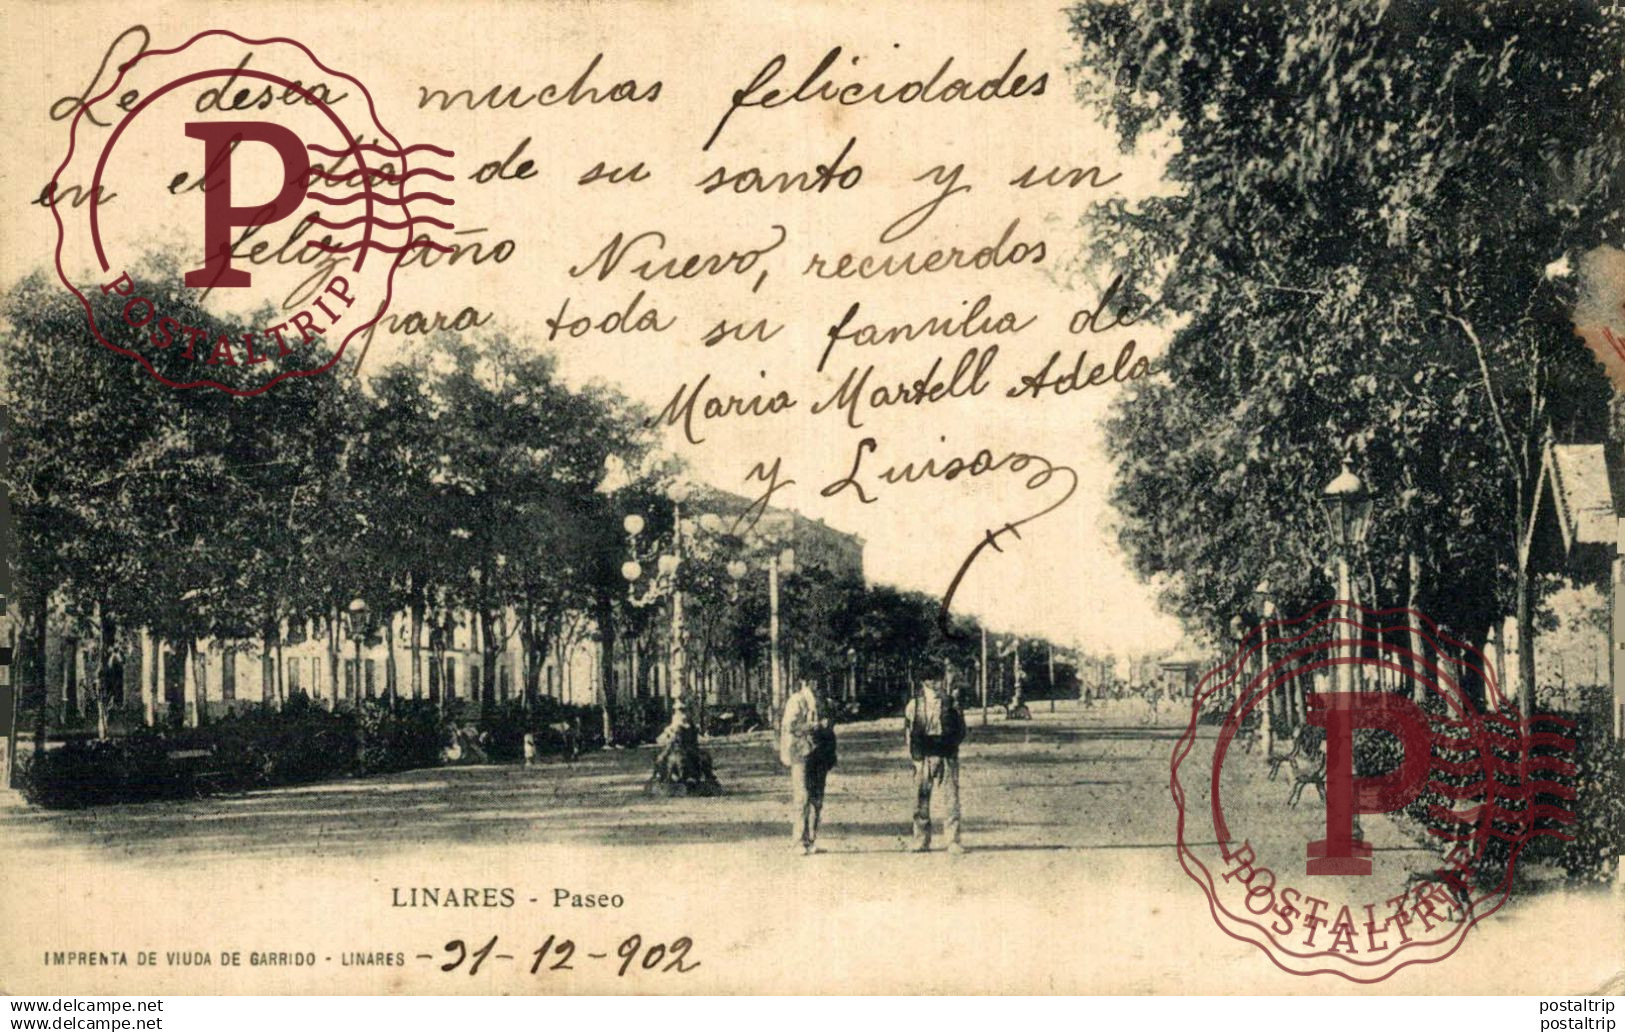 Le desea muchas felicidades
en el dia de su santo y un
feliz año Nuevo, recuerdos
para toda su familia de
Maria Martell Adela
y Luisa
LINARES - Paseo
IMPRENTA DE VIUDA DE GARRIDO - LINARES - 31-12-902
P
POSTALTRIP
P
POSTALTRIP
POSTALTRIP
www.delcampe.net
www.delcampe.net
postaltrip
postaltrip